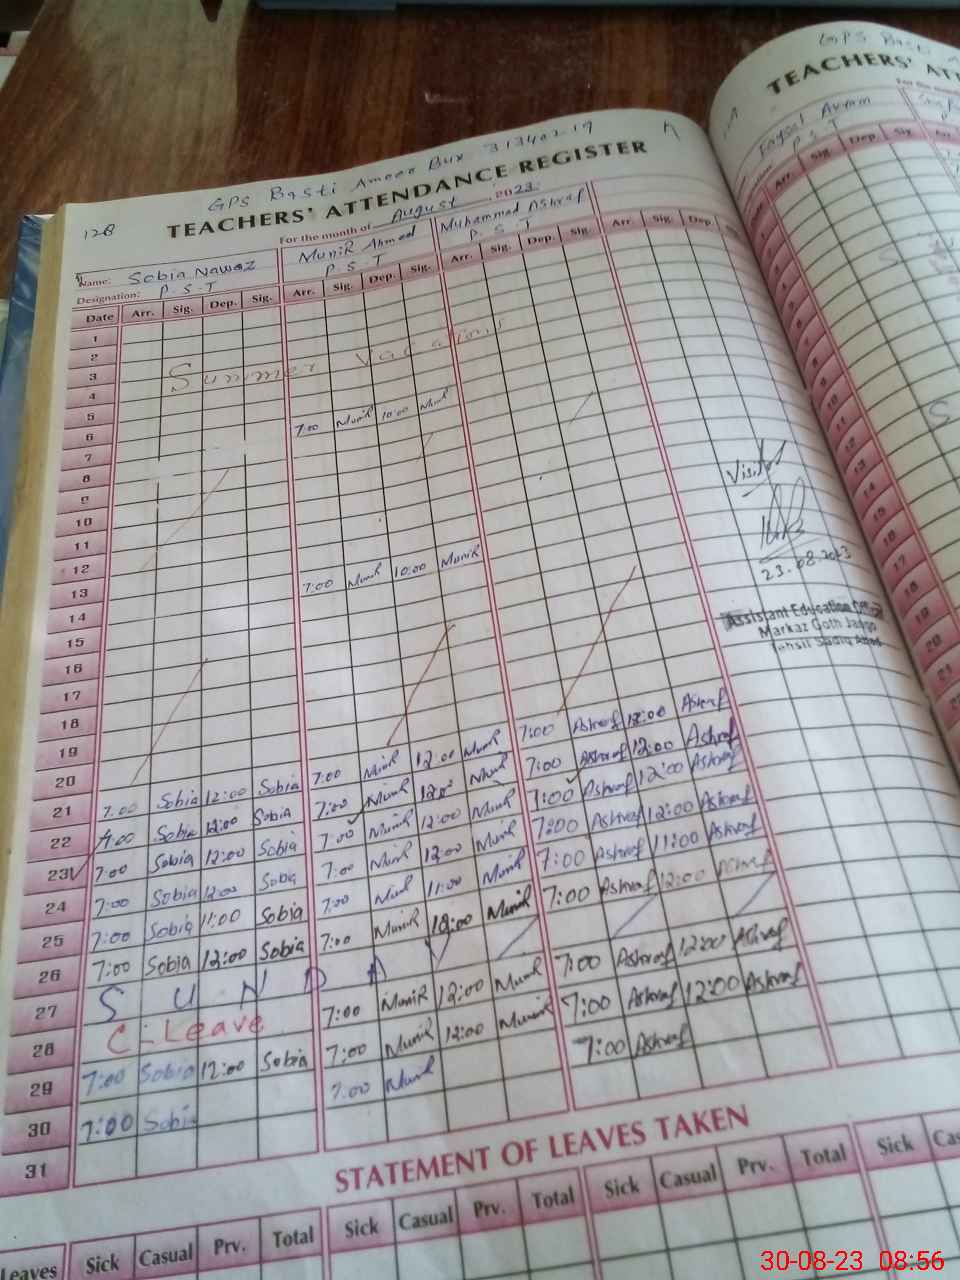 GPS Basti Ameer Bux 31340219
A
128
TEACHERS' ATTENDANCE REGISTER
For the month of August 2023
Name: Sobia Nawaz Munir Ahmed Muhammad Ashraf
Designation: P.S.T P.S.T P.S.T
Date Arr. Sig. Dep. Sig. Arr. Sig. Dep. Sig. Arr. Sig. Dep. Sig. Arr. Sig. Dep.
1
2
3
4
Summer Vacations
5
6 7:00 Munir 10:00 Munir
7
8
9
10
11
12
13 7:00 Munir 10:00 Munir
14
15
16
17
18
19
20
21 7:00 Sobia 12:00 Sobia 7:00 Munir 12:00 Munir 7:00 Ashraf 12:00 Ashraf
22 7:00 Sobia 12:00 Sobia 7:00 Munir 12:00 Munir 7:00 Ashraf 12:00 Ashraf
23 7:00 Sobia 12:00 Sobia 7:00 Munir 12:00 Munir 7:00 Ashraf 12:00 Ashraf
24 7:00 Sobia 12:00 Sobia 7:00 Munir 12:00 Munir 7:00 Ashraf 12:00 Ashraf
25 7:00 Sobia 11:00 Sobia 7:00 Munir 11:00 Munir 7:00 Ashraf 11:00 Ashraf
26 7:00 Sobia 12:00 Sobia 7:00 Munir 12:00 Munir 7:00 Ashraf 12:00 Ashraf
27 SUNDAY
28 C-Leave 7:00 Munir 12:00 Munir 7:00 Ashraf 12:00 Ashraf
29 7:00 Sobia 12:00 Sobia 7:00 Munir 12:00 Munir 7:00 Ashraf 12:00 Ashraf
30 7:00 Sobia 7:00 Munir 7:00 Ashraf
31
Visited
23.08.2023
Assistant Education Officer
Markaz Goth Jango
Tehsil Sadiq Abad
STATEMENT OF LEAVES TAKEN
Leaves Sick Casual Prv. Total Sick Casual Prv. Total Sick Casual Prv. Total Sick
GPS Basti
TEACHERS'
For the
Faysal
P.S.T
Arr. Sig. Dep Sig
10
11
12
13
14
15
16
17
18
19
20
21
30-08-23 08:56